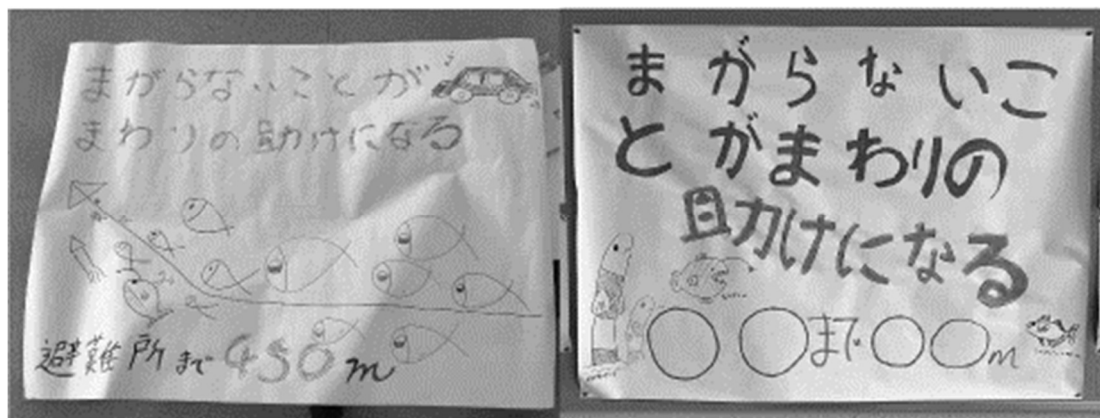 まがらないことが
まわりの助けになる
避難所まで450m
まがらないこ
とがまわりの
助けになる
○○まで○○m